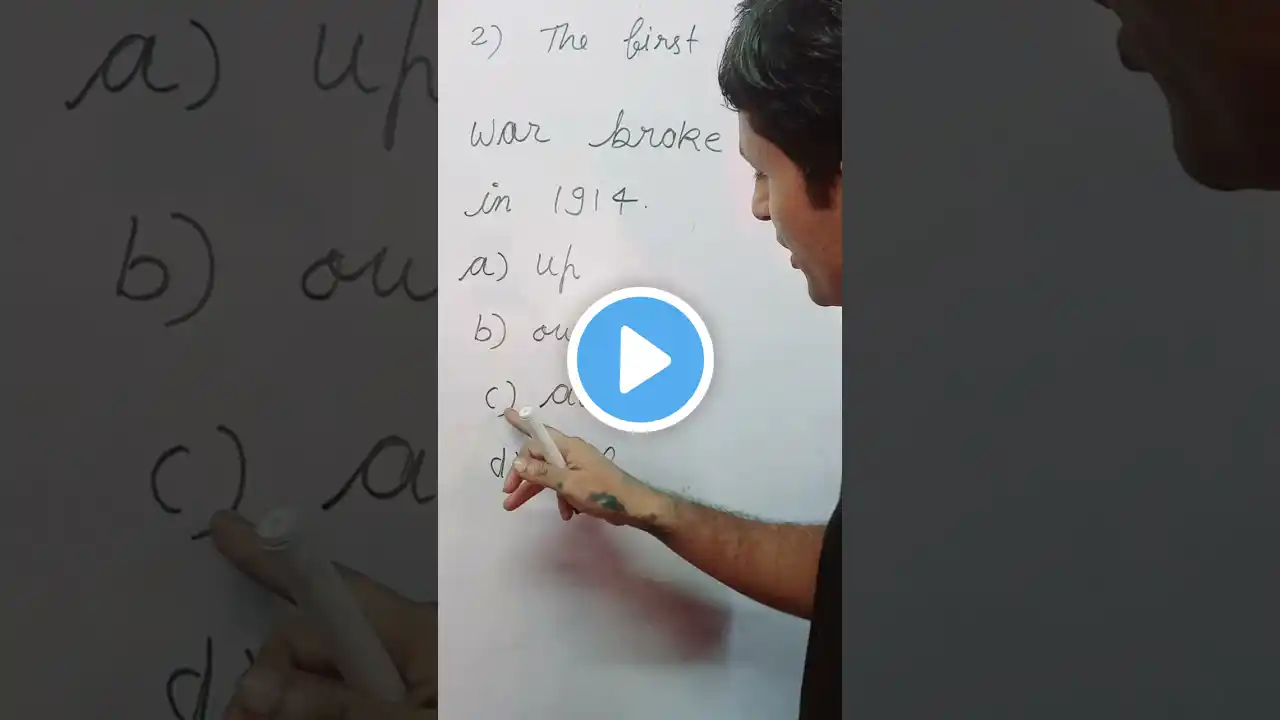 2) The first
war broke
in 1914.
a) up
b) ou
c) a
d)